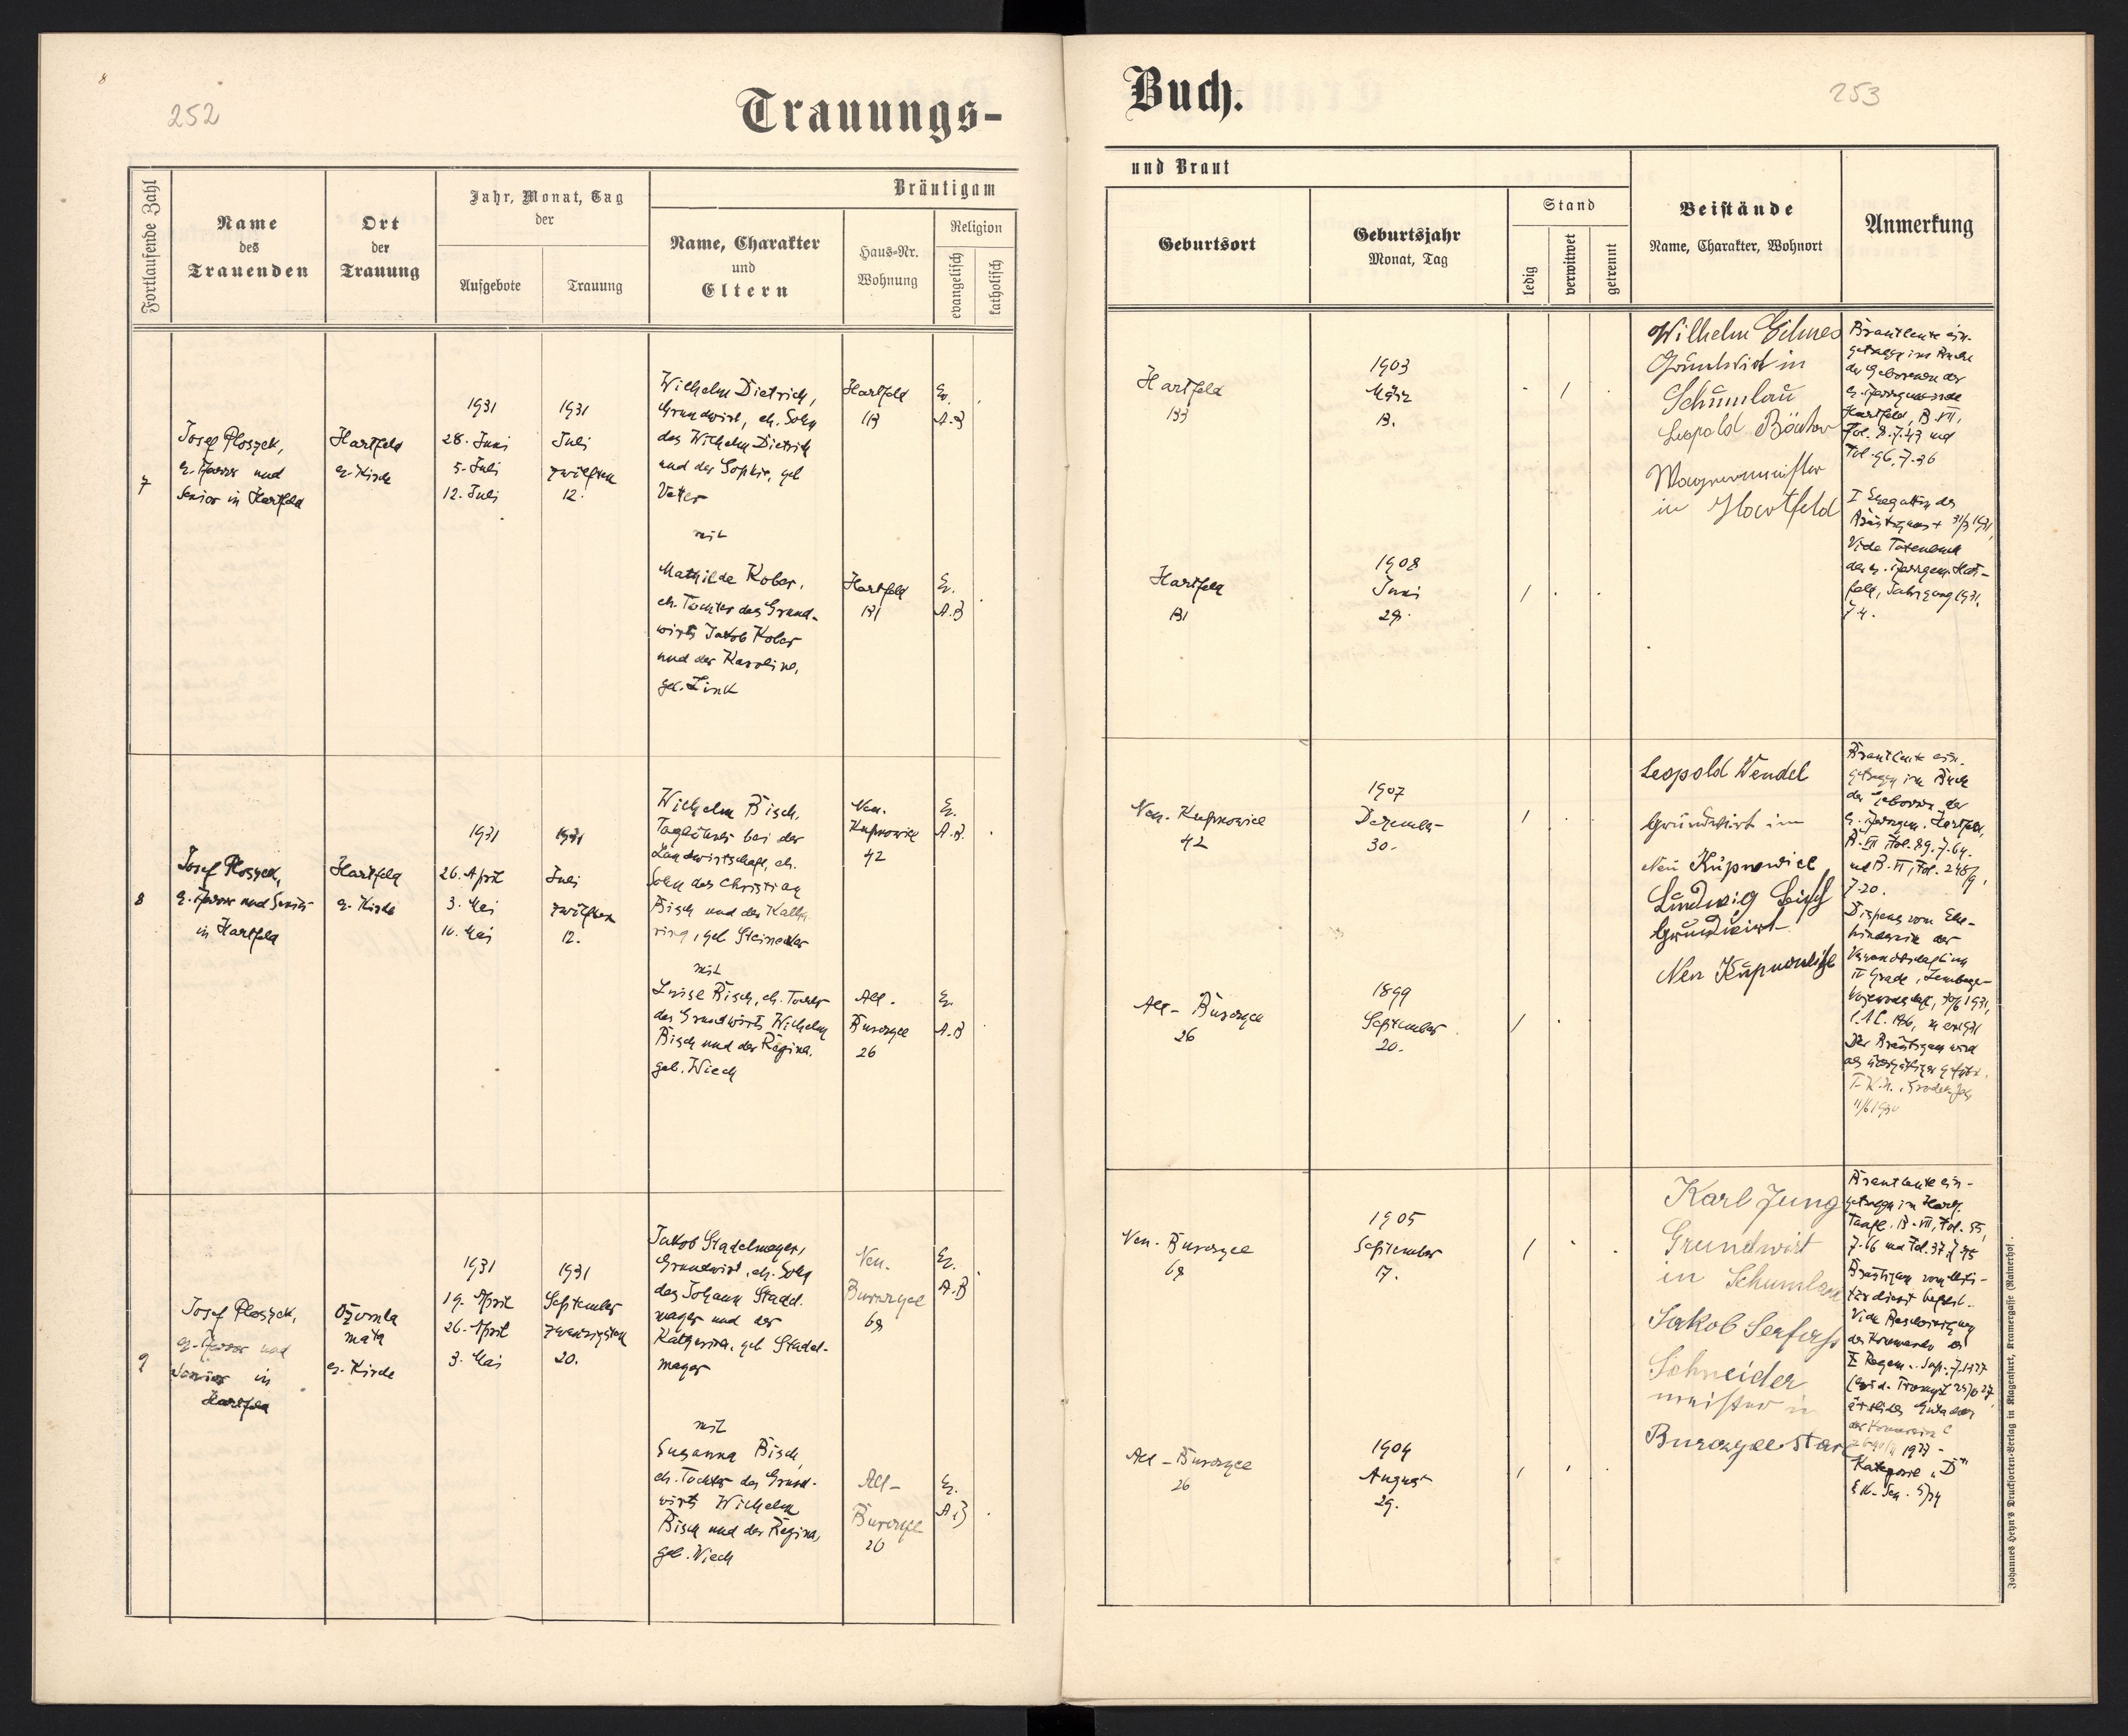 8
252
Trauungs-
Fortlaufende Zahl
Name
des
Trauenden
Ort
der
Trauung
Jahr, Monat, Tag
der
Aufgebote
Trauung
Bräutigam
Name, Charakter
und
Eltern
Haus-Nr.
Wohnung
Religion
evangelisch
katholisch
7
Josef Ploszek,
e. Pfarrer und
Senior in Hartfeld
Hartfeld
e. Kirche
1931
28. Juni
5. Juli
12. Juli
1931
Juli
zwölften
12.
Wilhelm Dietrich,
Grundwirt, eh. Sohn
des Wilhelm Dietrich
und der Sophie, geb
Vetter
mit
Mathilde Kober,
eh. Tochter des Grund-
wirts Jakob Kober
und der Karoline,
geb. Zink
Hartfeld
Ev.
A.B
Hartfeld
131
Ev.
A.B
8
Josef Ploszek,
e. Pfarrer und Senior
in Hartfeld
Hartfeld
e. Kirche
1931
26. April
3. Mai
10. Mai
1931
Juli
zwölften
12.
Wilhelm Bisch,
Taglöhner bei der
Landwirtschaft, eh.
Sohn des Christian
Bisch und der Katha
rina, geb Steinecker
mit
Luise Bisch, eh. Tochter
des Grundwirts Wilhelm
Bisch und der Regina,
geb. Wiech
Neu-
Kupnowice
42
Ev.
A.B.
Alt-
Burczyce
26
Ev.
A.B
9
Josef Ploszek,
e. Pfarrer und
Senior in
Hartfeld
Ożomla
mała
e. Kirche
1931
19. April
26. April
3. Mai
1931
September
zwanzigsten
20.
Jakob Stadelmayer,
Grundwirt, eh. Sohn
des Johann Stadel-
mayer und der
Katherina, geb Stadel-
mayer
mit
Susanna Bisch,
eh. Tochter des Grund-
wirts Wilhelm
Bisch und der Regina,
geb. Wiech
Neu-
Burczyce
68
Ev.
A.B
Alt-
Burczyce
26
Ev.
A.B
Buch.
253
und Braut
Geburtsort
Geburtsjahr
Monat, Tag
Stand
ledig
verwitwet
getrennt
Beistände
Name, Charakter, Wohnort
Anmerkung
Hartfeld
133
1903
März
13.
Hartfeld
131
1908
Juni
29.
Wilhelm
Grundwirt in
Schumlau
Leopold
Wagnermeister
in Hartfeld
Brautleute ein-
getragen im Buche
der Geborenen der
e. Pfarrgemeinde
Hartfeld, B. VII,
Fol. 8. 7.43 und
Fol. 96, 7.36
I Ehegattin des
Bräutigams + 31/3 1931,
Vide Totenbuch
der e. Pfarrgem. Hart-
feld, Jahrgang 1931,
7 4.
Neu-Kupnowice
42
1907
Dezember
30.
Alt-Burczyce
26
1899
September
20.
Leopold Wendel
Grundwirt in
Neu Kupnowice
Ludwig
Grundwirt
Neu Kupnowice
Brautleute ein-
getragen im Buch
der Geboren. der
e. Pfarrgem. Hartfeld,
B. VII, Fol. 89, 7.64.
und B. VI, Fol.
7.20.
Dispens vom Ehe-
hindernis der
Verwandtschaft im
Grade, Lemberger
Wojewodschaft,
Der Bräutigam wird
als
Neu-Burczyce
68
1905
September
17.
Alt-Burczyce
26
1904
August
29.
Karl Jung
Grundwirt
in Schumlau
Jakob Serfass
Schneider
meister in
Burczyce stare
Brautleute ein-
getragen im Hartf.
Taufb. B. VII, Fol. 55,
7.66 und Fol. 37, 7.45
Bräutigam vom Mili-
tärdienst befreit.
Vide Bescheinigung
des Kommando des
1927
Kategorie "D"
Johannes Heyn's Drucksorten-Verlag in Klagenfurt, Kramergasse (Rainerhof).